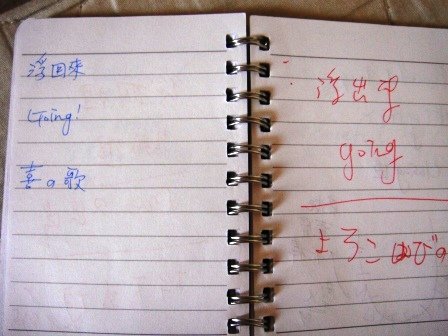 浮回来
Going!
喜の歌
浮出
going
よろこびの